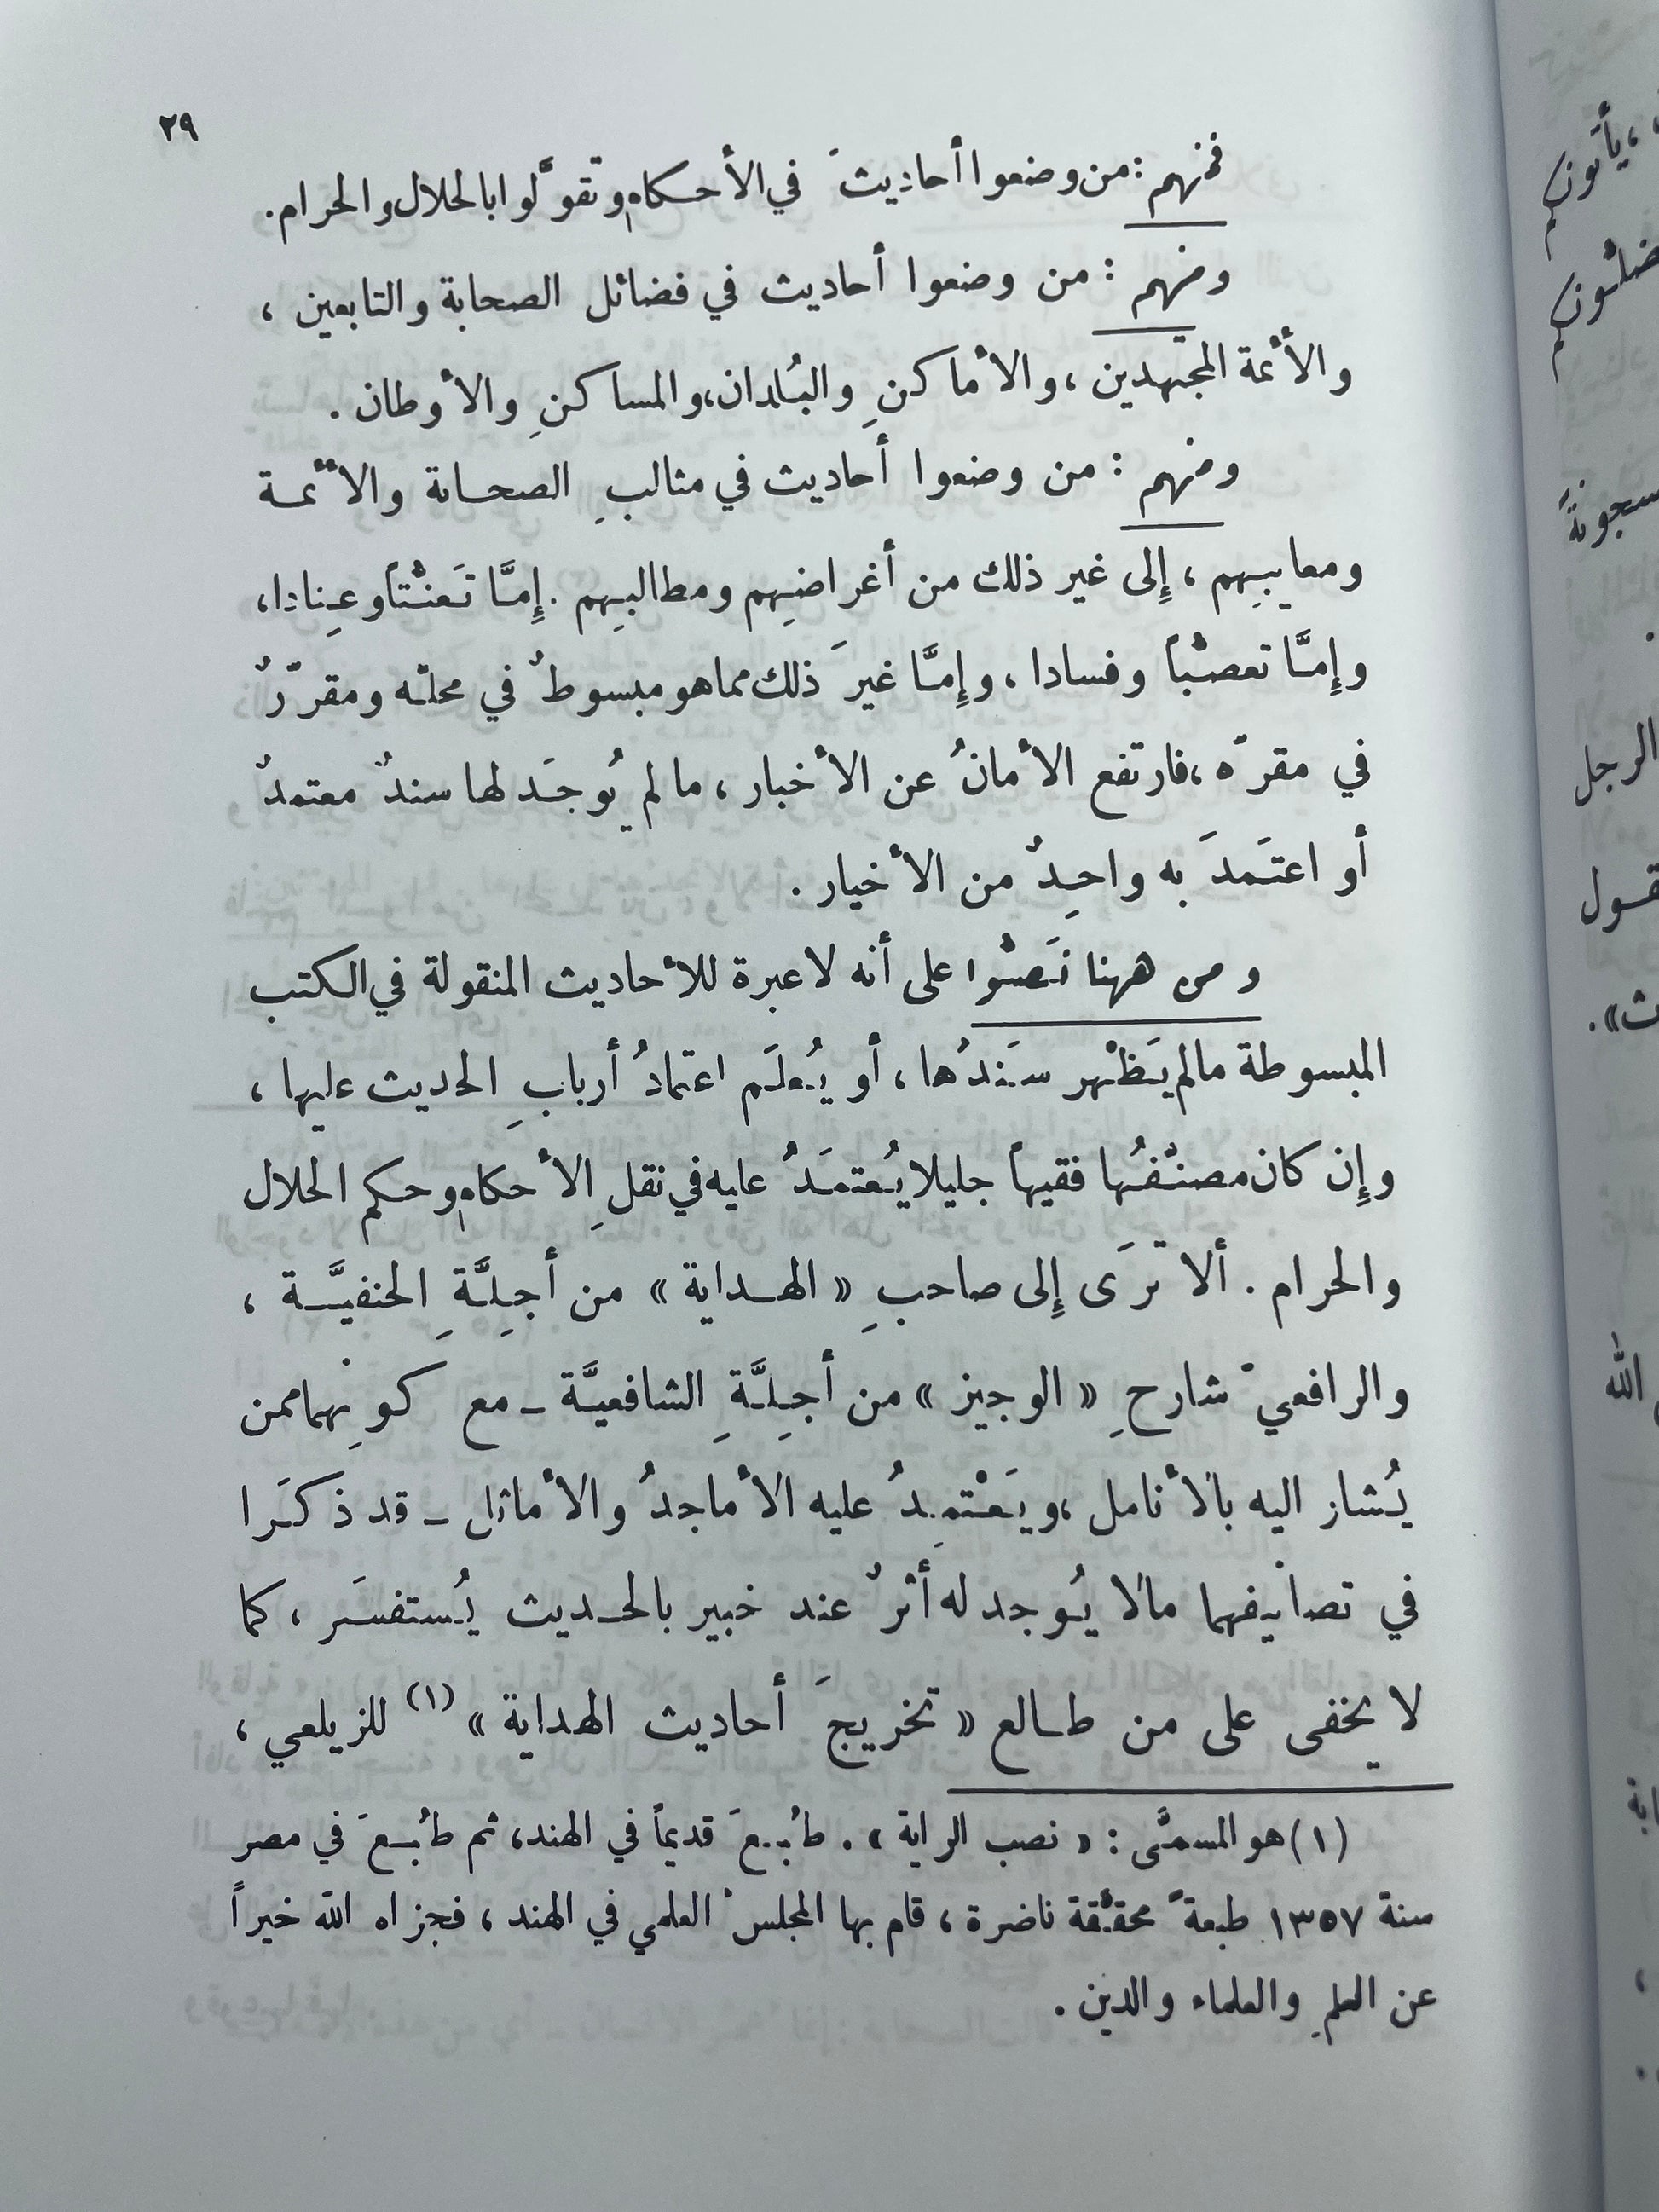 ٢٩
فمنهم : من وضعوا أحاديثَ في الأحكام وتقوَّلوا بالحلال والحرام.
ومنهم : من وضعوا أحاديث في فضائل الصحابة والتابعين ،
والأئمة المجتهدين ، والأماكنِ والبُلدان، والمساكنِ والأوطان .
ومنهم : من وضعوا أحاديث في مثالبِ الصحابة والأئمة
ومعايبِهم ، إلى غير ذلك من أغراضِهم ومطالبِهم . إمَّا تَعنُّتاً وعِنادا،
وإمَّا تعصُّباً وفسادا ، وإمَّا غيرَ ذلك مما هو مبسوطٌ في محلّه ومقرّرٌ
في مقرّه ، فارتفع الأمانُ عن الأخبار ، ما لم يُوجَد لها سندٌ معتمدٌ
أو اعتَمدَ به واحِدٌ من الأخيار .
ومن ههنا نَصُّوا على أنه لا عبرة للأحاديث المنقولة في الكتب
المبسوطة ما لم يَظْهر سَنَدُها ، أو يُعلَم اعتمادُ أربابِ الحديث عليها ،
وإن كان مصنّفُها فقيهاً جليلا يُعتمَدُ عليه في نقلِ الأحكام وحكم الحلال
والحرام . ألا تَرَى إلى صاحبِ « الهداية » من أجِلَّةِ الحنفيَّة ،
والرافعيّ شارحِ « الوجيز » من أجِلَّةِ الشافعيَّة - مع كونِهما ممن
يُشار اليه بالأنامل ، ويَعْتمِدُ عليه الأماجدُ والأماثل - قد ذكَرا
في تصانيفهما مالا يُوجد له أثرٌ عند خبير بالحديث يُستفسَر ، كما
لا يخفى على من طالع « تخريجَ أحاديث الهداية » (١) للزيلعي ،
(١) هو المسمَّى : « نصب الراية » . طُبعَ قديماً في الهند، ثم طُبعَ في مصر
سنة ١٣٥٧ طبعةً محقّقة ناضرة ، قام بها المجلسُ العلمي في الهند ، فجزاه الله خيراً
عن العلمِ والعلماء والدين .